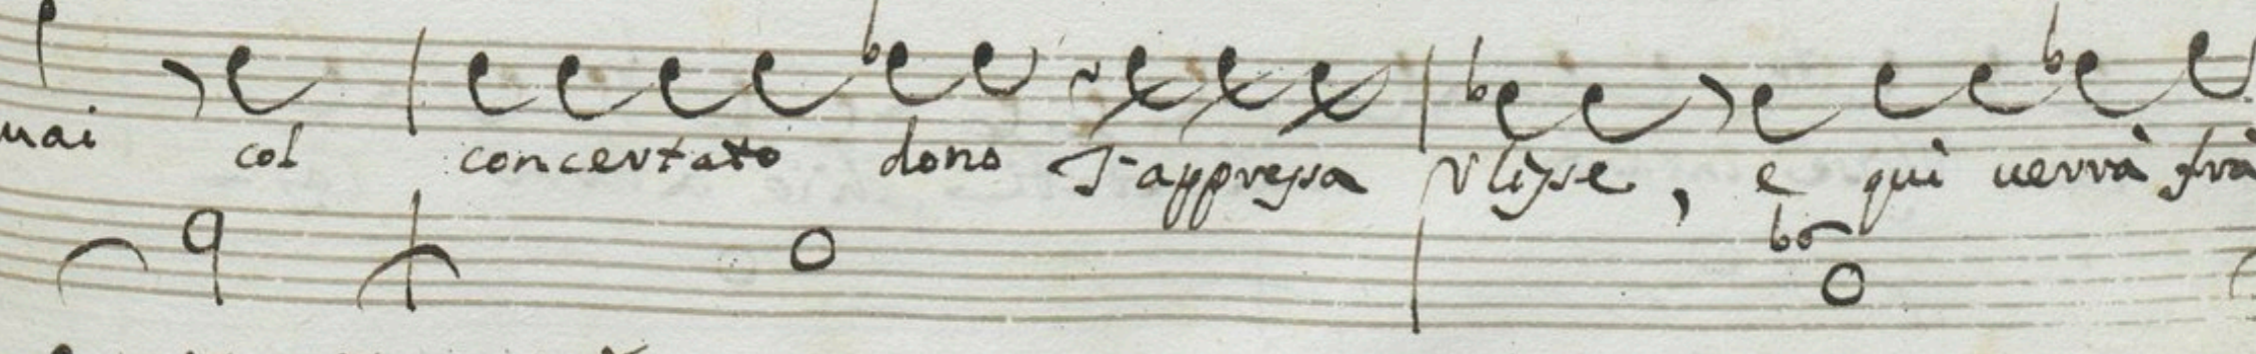 mai col concertato dono S'appressa Vlisse, e quì uerrà frà